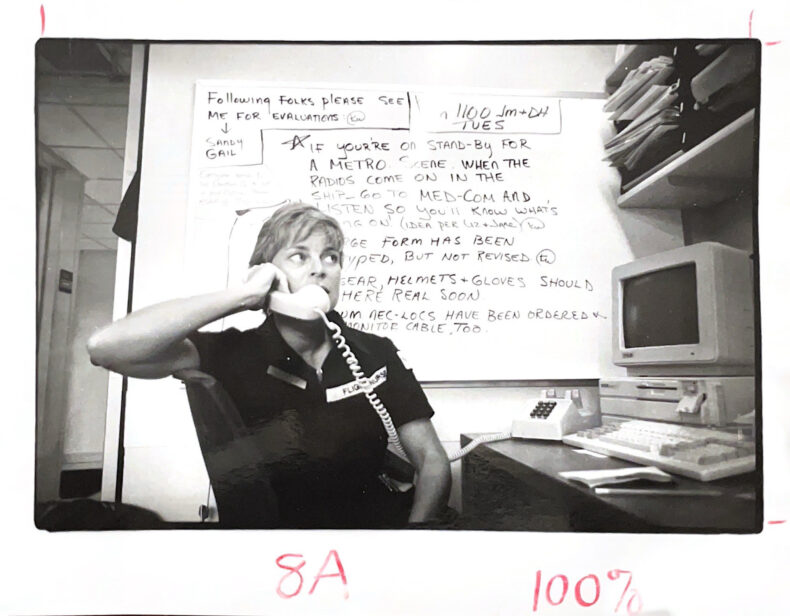 Following Folks please see
me for evaluations EW
Sandy
Gail
1100 Jm+DH
Tues
If you're on stand-by for
a metro scene. When the
radios come on in the
ship_ go to Med-Com and
listen so you'll know what's
on (idea per Liz + Jane) EW
form has been
, but not revised EW
, helmets + gloves should
here real soon.
have been ordered +
monitor cable, too.
FLIGHT NURSE
8A
100%